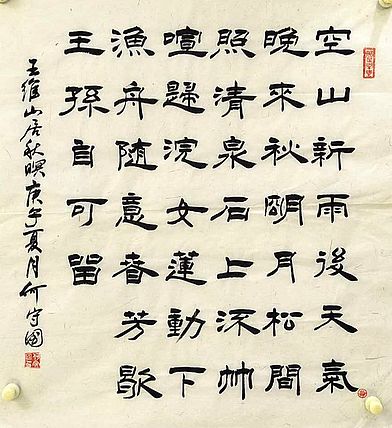 空山新雨後天氣
晚來秋朙月松間
照清泉石上流竹
喧歸浣女蓮動下
漁舟隨意春芳歇
王孫自可留
王維山居秋暝庚午夏月何守國